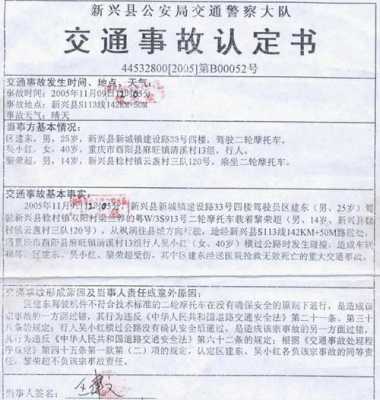 新兴县公安局交通警察大队
交通事故认定书
44532800[2005]第B00052号
交通事故发生时间、地点、天气:
事故时间:2005年11月09日
事故地点:新兴县S113线142KM+50M
事故天气:晴天
当事方基本情况:
区建东,男,25岁,新兴县新城镇建设路33号四楼,驾驶二轮摩托车。
吴小红,女,40岁,重庆市酉阳县麻旺镇清溪村13组,行人。
黎荣超,男,14岁,新兴县稔村镇云涌村三队120号,乘坐二轮摩托车。
交通事故基本事实:
2005年11月,新兴县新城镇建设路33号四楼驾驶员区建东(男,25岁)驾
驶新兴县稔村镇的粤W/3S913号二轮摩托车载着黎荣超(男,14岁,新兴县稔
村镇云涌村三队120号),从枫洞往县城方向行驶,途经新兴县S113线142KM+50M路段处,
与重庆市酉阳县麻旺镇清溪村13组行人吴小红(女,40岁)横过公路时发生碰撞,造成车辆
、黎荣超受伤,其中区建东经送医院抢救无效死亡的重大交通事故。
交通事故形成原因及当事人责任或意外原因:
区建东驾驶机件不符合技术标准的二轮摩托车在没有确保安全的原则下通行,是造成该
宗事故的一方面过错,其行为违反《中华人民共和国道路交通安全法》第二十一条、第三十
八条的规定;行人吴小红横过公路没有确认安全后通过,是造成该宗事故的另一方面过错,
其行为违反《中华人民共和国道路交通安全法》第六十二条的规定;根据《交通事故处理程
序规定》第四十五条第一款第(二)项的规定,认定区建东、吴小红各负该宗事故的同等责
任,黎荣超不负该宗事故责任。
当事人签名: